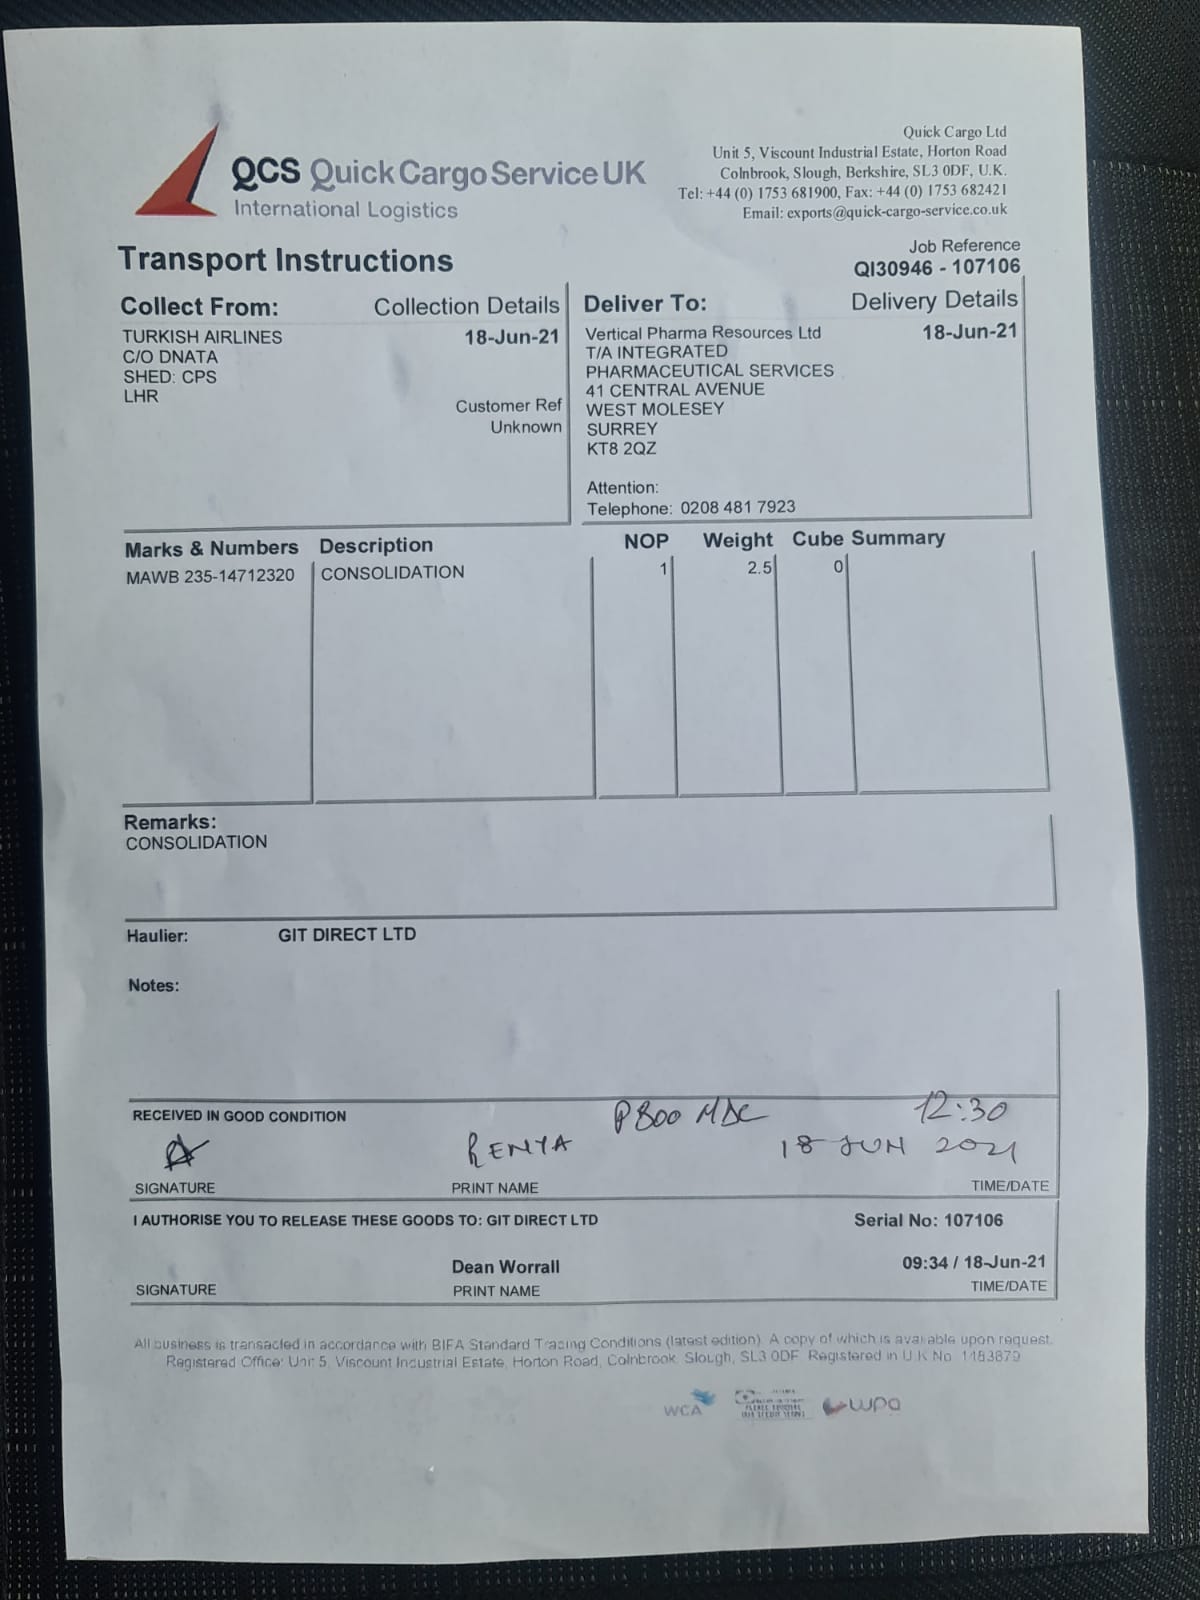 QCS Quick Cargo Service UK
International Logistics
Quick Cargo Ltd
Unit 5, Viscount Industrial Estate, Horton Road
Colnbrook, Slough, Berkshire, SL3 0DF, U.K.
Tel: +44 (0) 1753 681900, Fax: +44 (0) 1753 682421
Email: exports@quick-cargo-service.co.uk
Transport Instructions
Job Reference
QI30946 - 107106
Collect From: Collection Details
TURKISH AIRLINES 18-Jun-21
C/O DNATA
SHED: CPS
LHR
Customer Ref
Unknown
Deliver To: Delivery Details
Vertical Pharma Resources Ltd 18-Jun-21
T/A INTEGRATED
PHARMACEUTICAL SERVICES
41 CENTRAL AVENUE
WEST MOLESEY
SURREY
KT8 2QZ
Attention:
Telephone: 0208 481 7923
Marks & Numbers Description NOP Weight Cube Summary
MAWB 235-14712320 CONSOLIDATION 1 2.5 0
Remarks:
CONSOLIDATION
Haulier: GIT DIRECT LTD
Notes:
RECEIVED IN GOOD CONDITION
12:30
RENYA 18 JUN 2021
SIGNATURE PRINT NAME TIME/DATE
I AUTHORISE YOU TO RELEASE THESE GOODS TO: GIT DIRECT LTD Serial No: 107106
Dean Worrall 09:34 / 18-Jun-21
SIGNATURE PRINT NAME TIME/DATE
All business is transacted in accordance with BIFA Standard Trading Conditions (latest edition). A copy of which is available upon request.
Registered Office: Unit 5, Viscount Industrial Estate, Horton Road, Colnbrook, Slough, SL3 0DF. Registered in U.K No. 1183879
WCA wpa